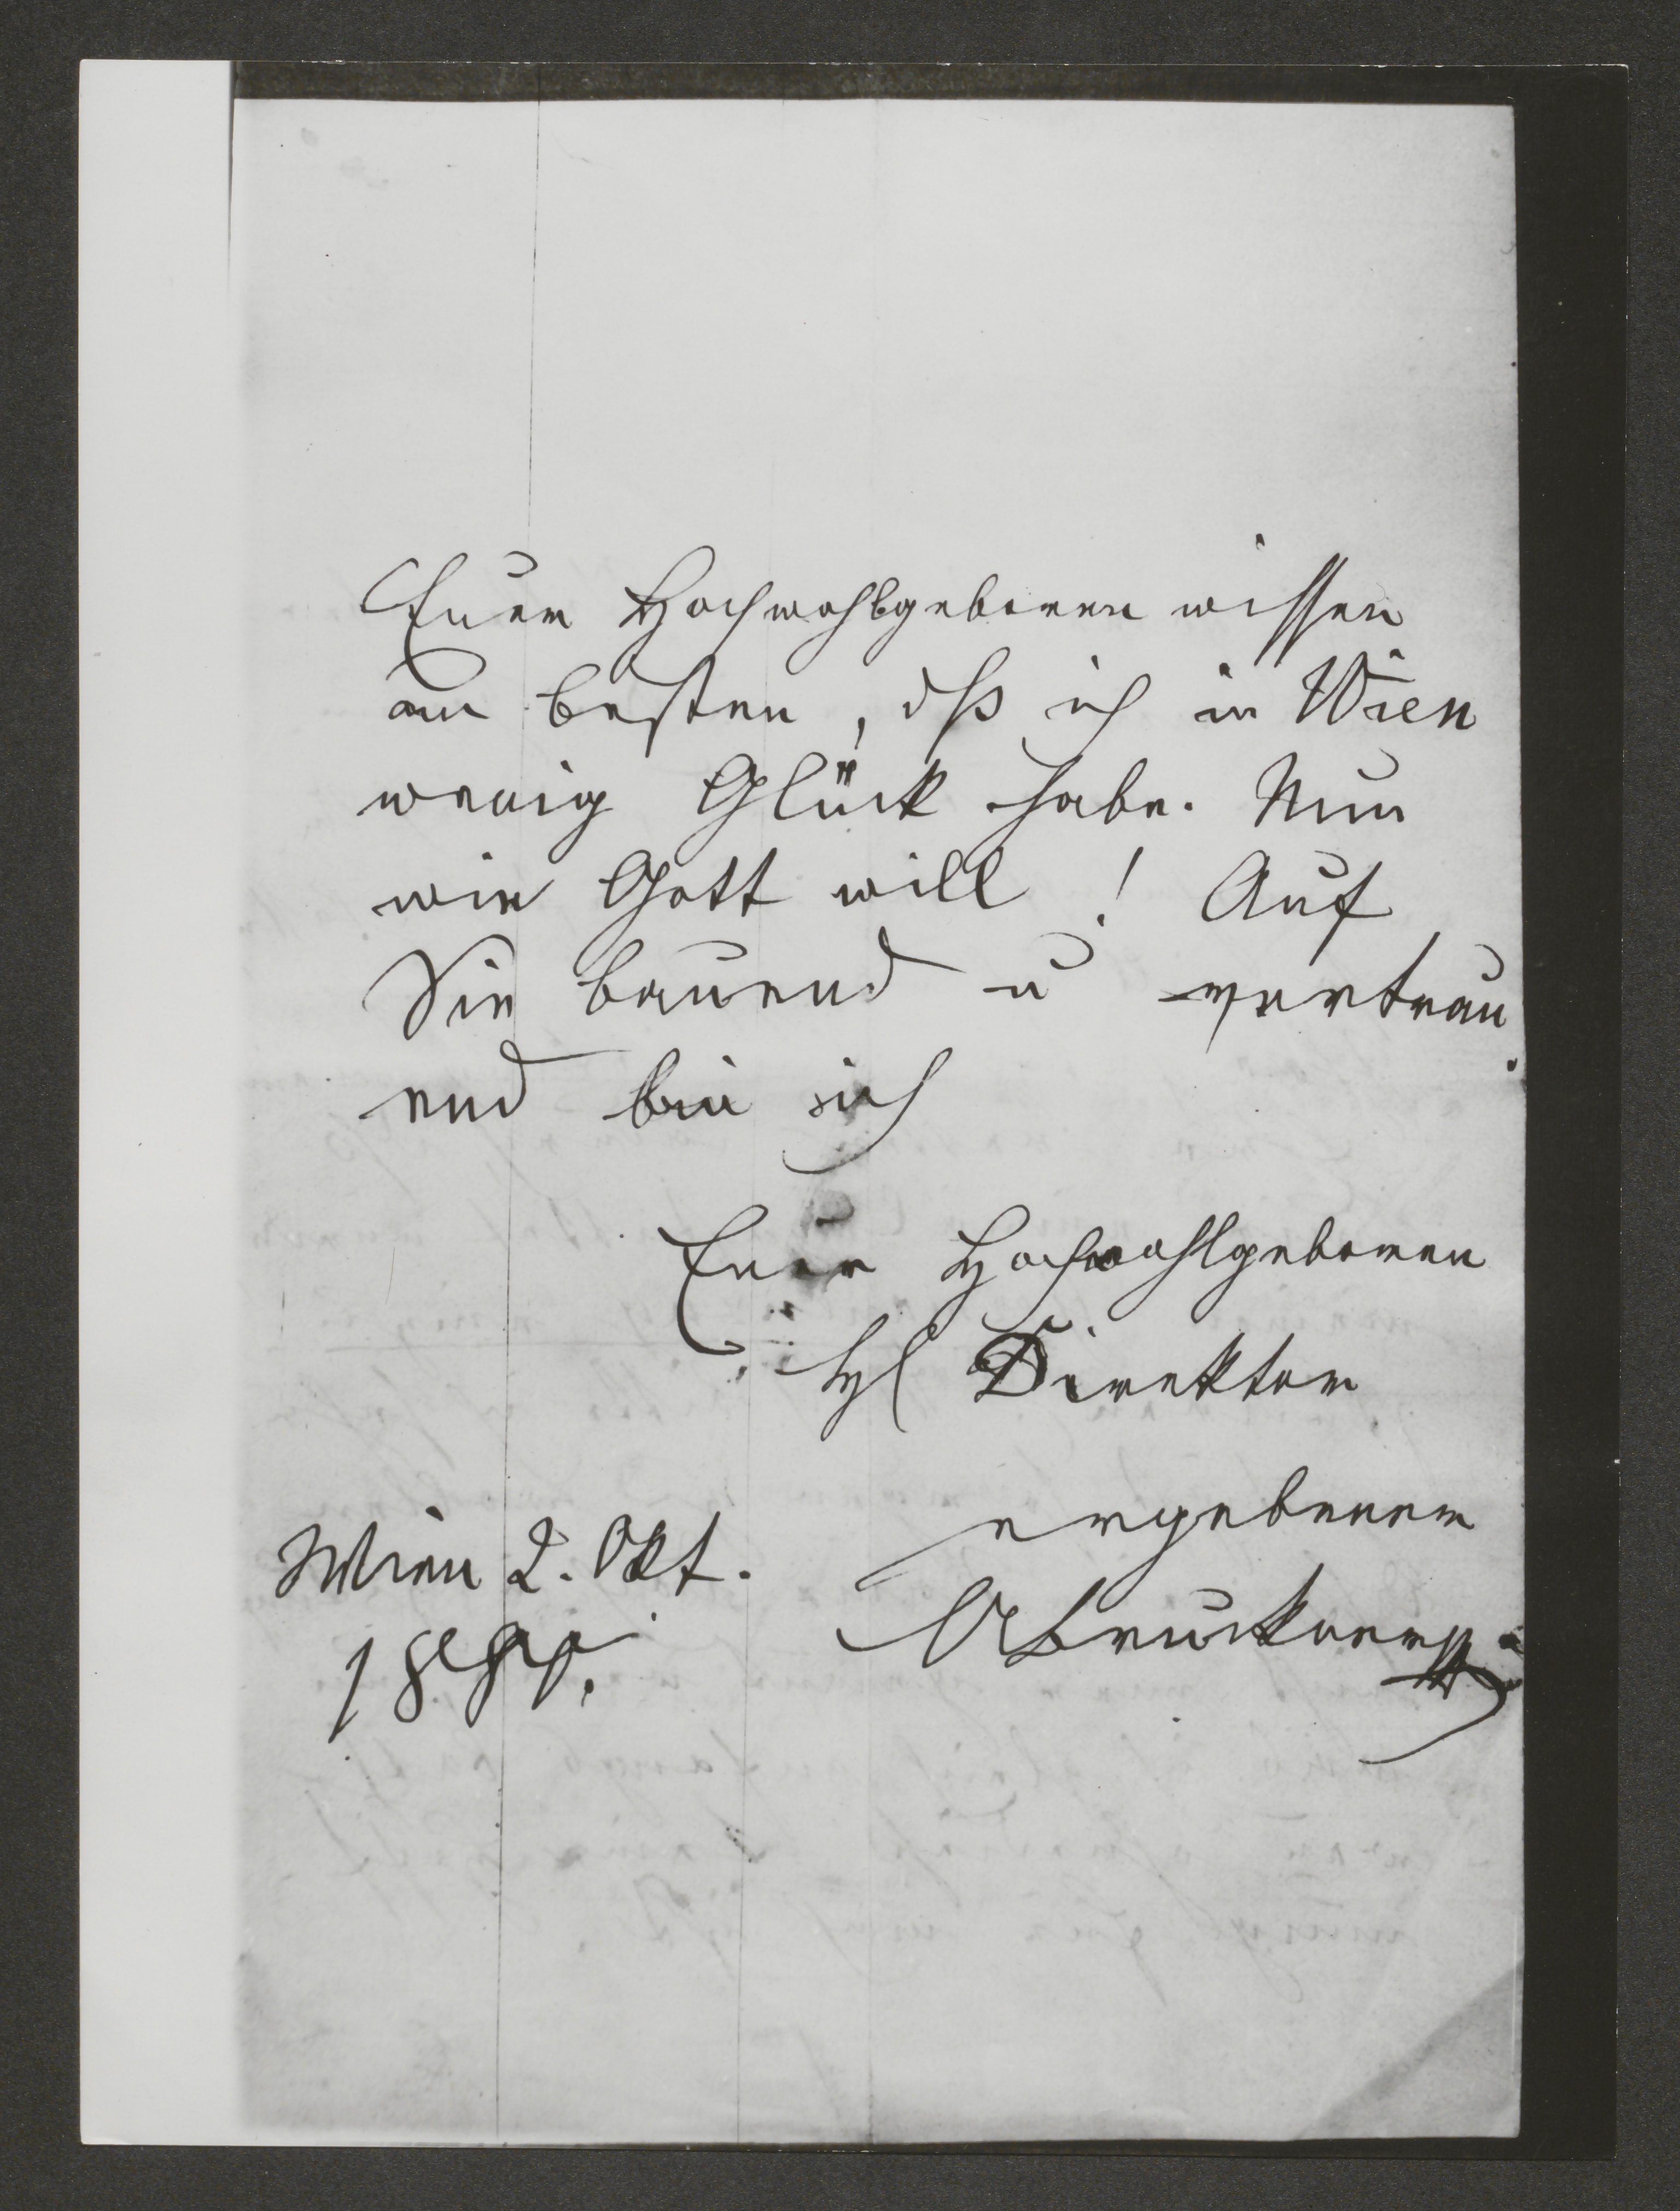 Euer Hochwohlgeboren wissen
am besten, dß ich in Wien
wenig Glück habe. Nun
wie Gott will! Auf
Sie bauend u vertrau
end bin ich
Euer Hochwohlgeboren
H Direktor
ergebener
Wien 2. Okt.
ABruckner